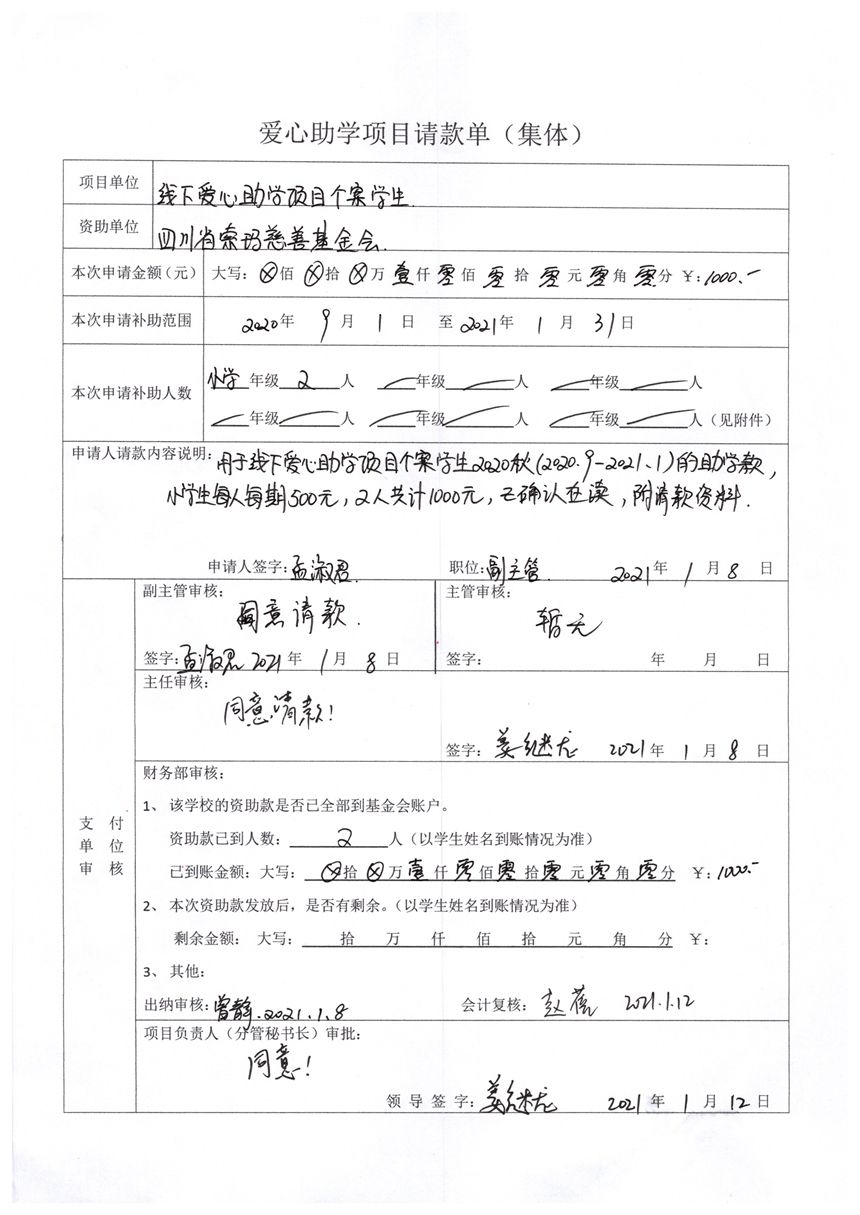 爱心助学项目请款单（集体）
项目单位 线下爱心助学项目个案学生.
资助单位 四川省索玛慈善基金会.
本次申请金额（元） 大写：ⓧ佰 ⓧ拾 ⓧ万 壹仟 零佰 零拾 零元 零角 零分 ¥：1000.-
本次申请补助范围 2020年 9月 1日 至 2021年 1月 31日
本次申请补助人数 小学 年级 2 人 年级 人 年级 人
年级 人 年级 人 年级 人（见附件）
申请人请款内容说明：用于线下爱心助学项目个案学生2020秋(2020.9-2021.1)的助学款，
小学生每人每期500元，2人共计1000元，已确认在读，附请款资料.
申请人签字：孟淑君. 职位：副主管. 2021年 1月 8日
支付单位审核
副主管审核：
同意请款.
签字：孟淑君 2021年 1月 8日
主管审核：
暂无
签字： 年 月 日
主任审核：
同意请款！
签字：姜继龙 2021年 1月 8日
财务部审核：
1、 该学校的资助款是否已全部到基金会账户。
资助款已到人数： 2 人（以学生姓名到账情况为准）
已到账金额：大写： ⓧ拾 ⓧ万 壹仟 零佰 零拾 零元 零角 零分 ¥：1000.-
2、 本次资助款发放后，是否有剩余。（以学生姓名到账情况为准）
剩余金额： 大写： 拾 万 仟 佰 拾 元 角 分 ¥：
3、 其他：
出纳审核：曾静.2021.1.8 会计复核：赵蓓 2021.1.12
项目负责人（分管秘书长）审批：
同意！
领导签字：姜继龙 2021年 1月 12日